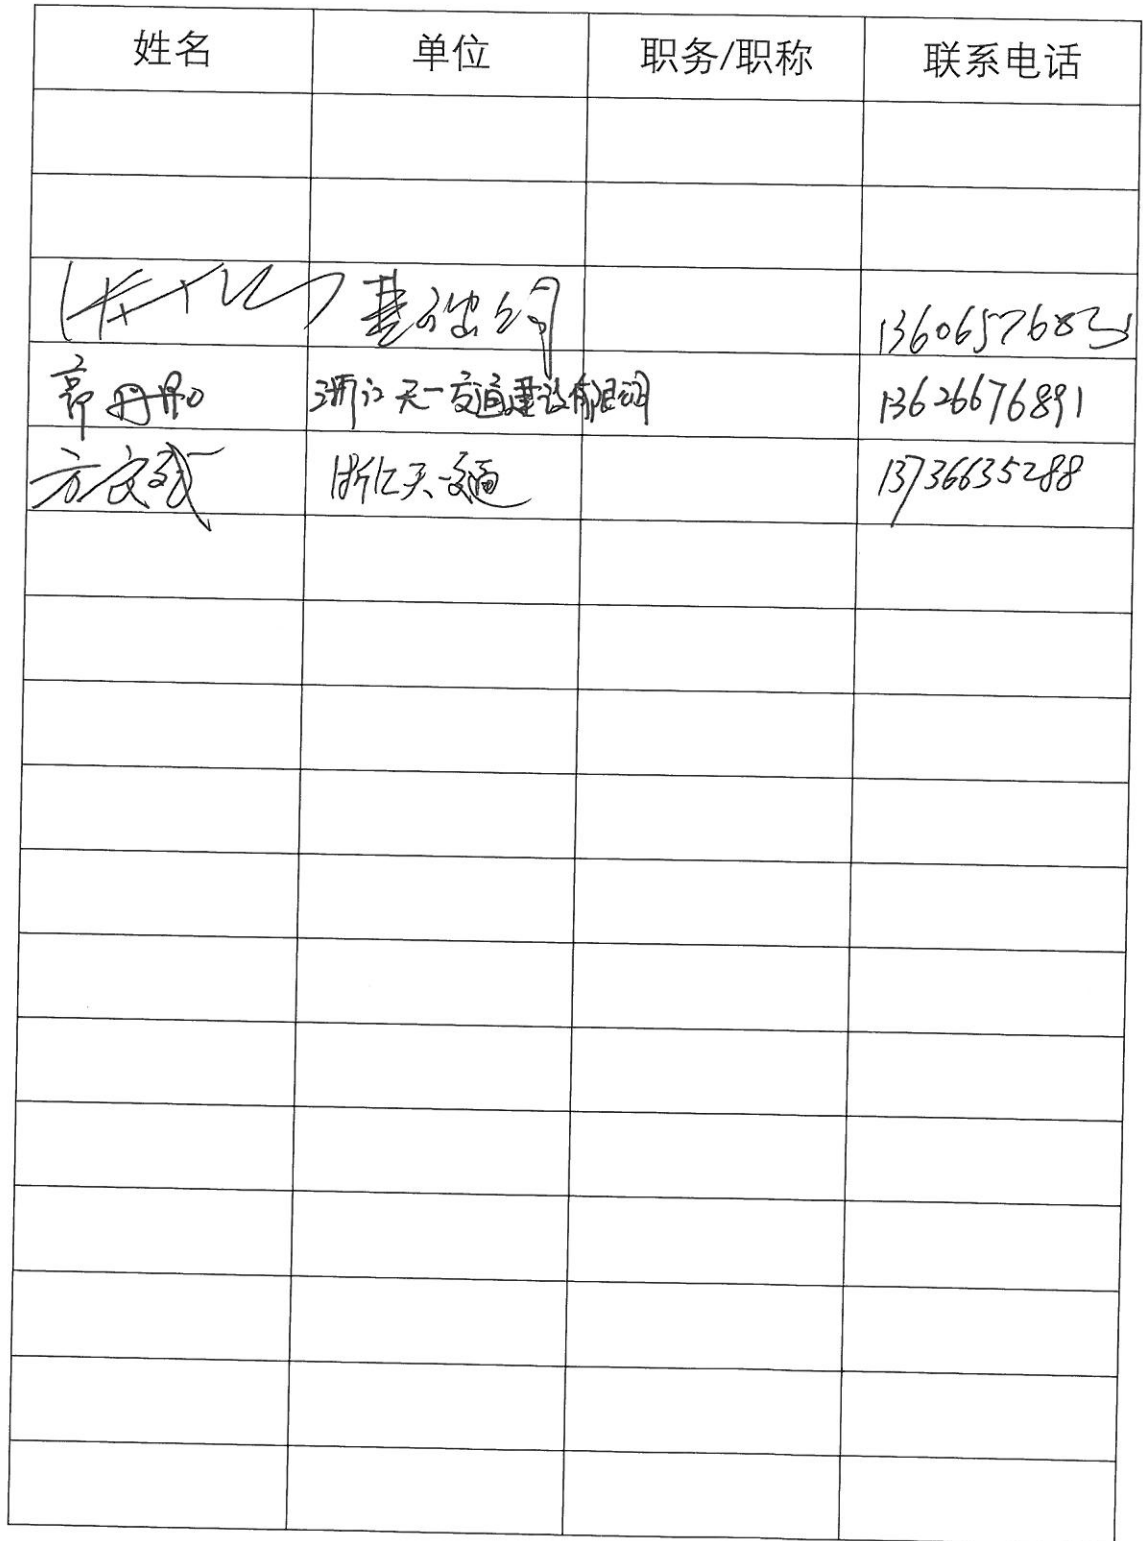 姓名 单位 职务/职称 联系电话
基础公司 136065768
丹丹 浙江天一交通建设有限公司 13626676891
方 浙江天一交通 13736635288